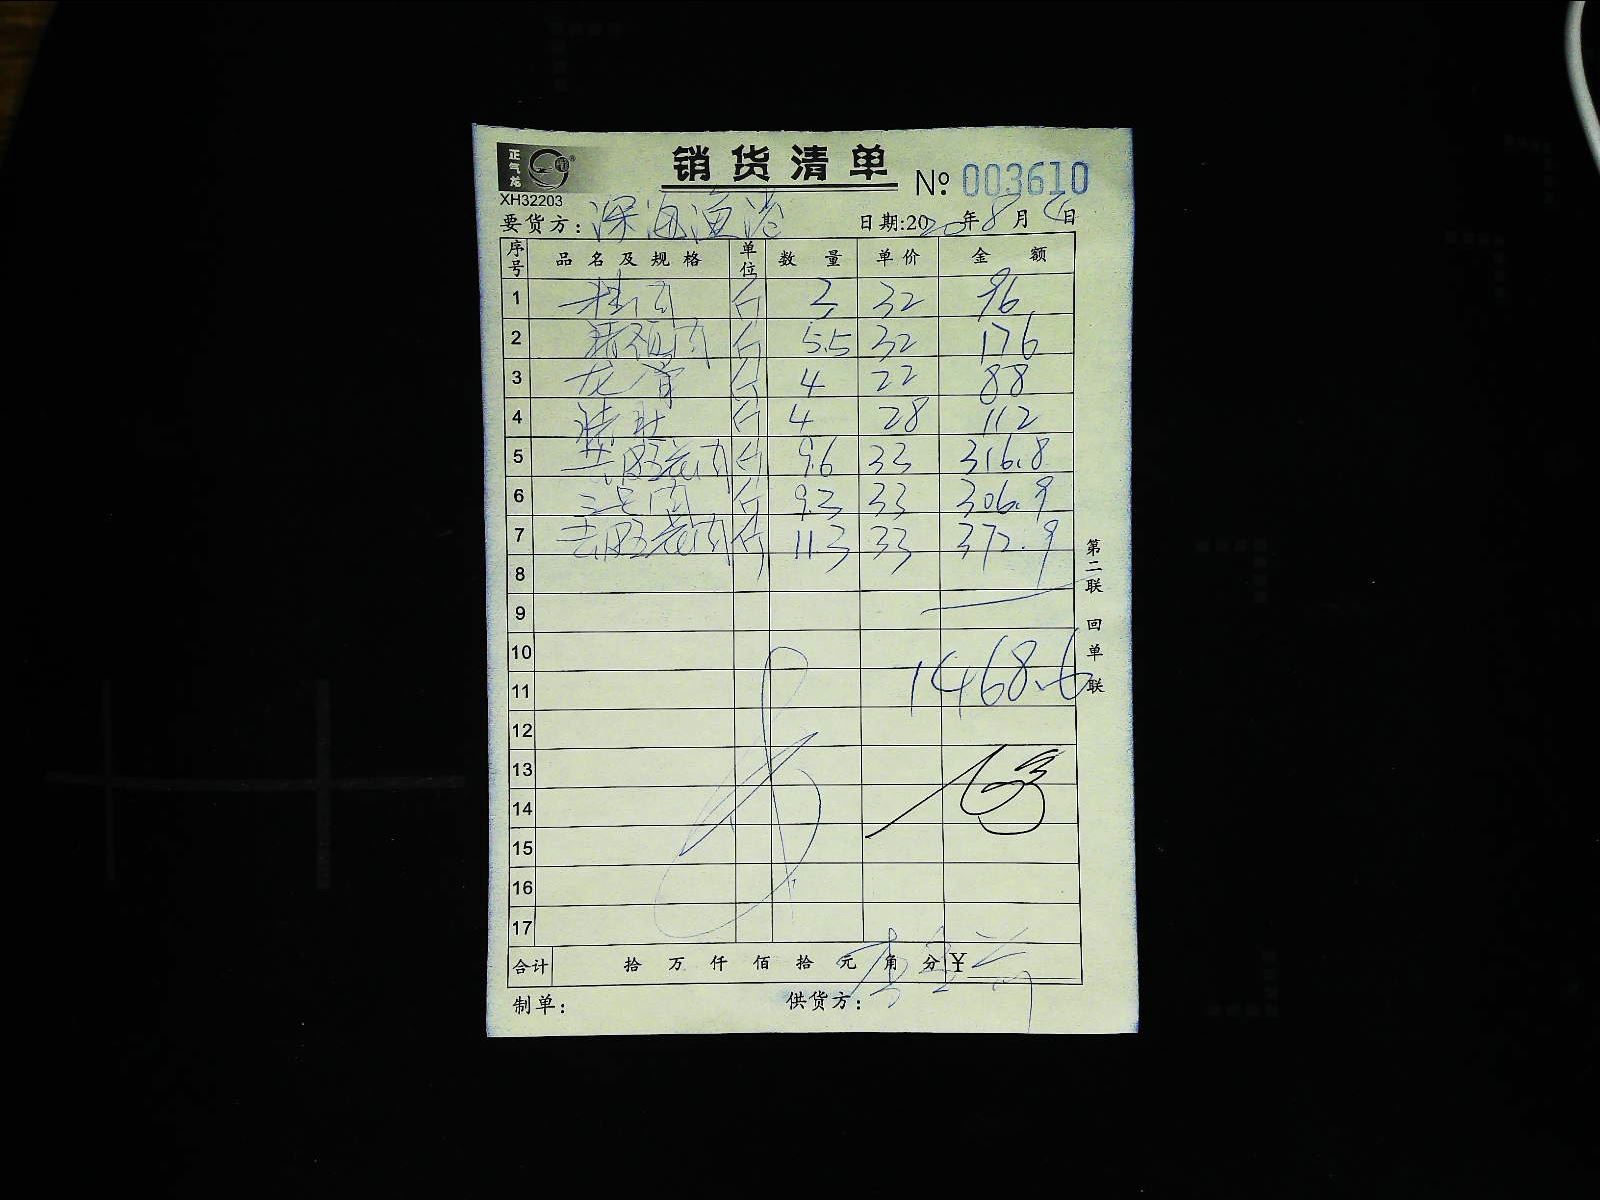 正气龙
销货清单
№ 003610
XH32203
要货方: 深海渔港 日期:2020年8月 日
序号 品名及规格 单位 数量 单价 金额
1 斤 3 32 96
2 猪颈肉 斤 5.5 32 176
3 龙骨 斤 4 22 88
4 猪肚 斤 4 28 112
5 去皮五花肉 斤 9.6 33 316.8
6 三号肉 斤 9.3 33 306.9
7 去皮五花肉 斤 11.3 33 372.9
8
9
10
1468.6
11
12
13
14
15
16
17
合计 拾万仟佰拾元角分 ¥
制单: 供货方:
第二联 回单联